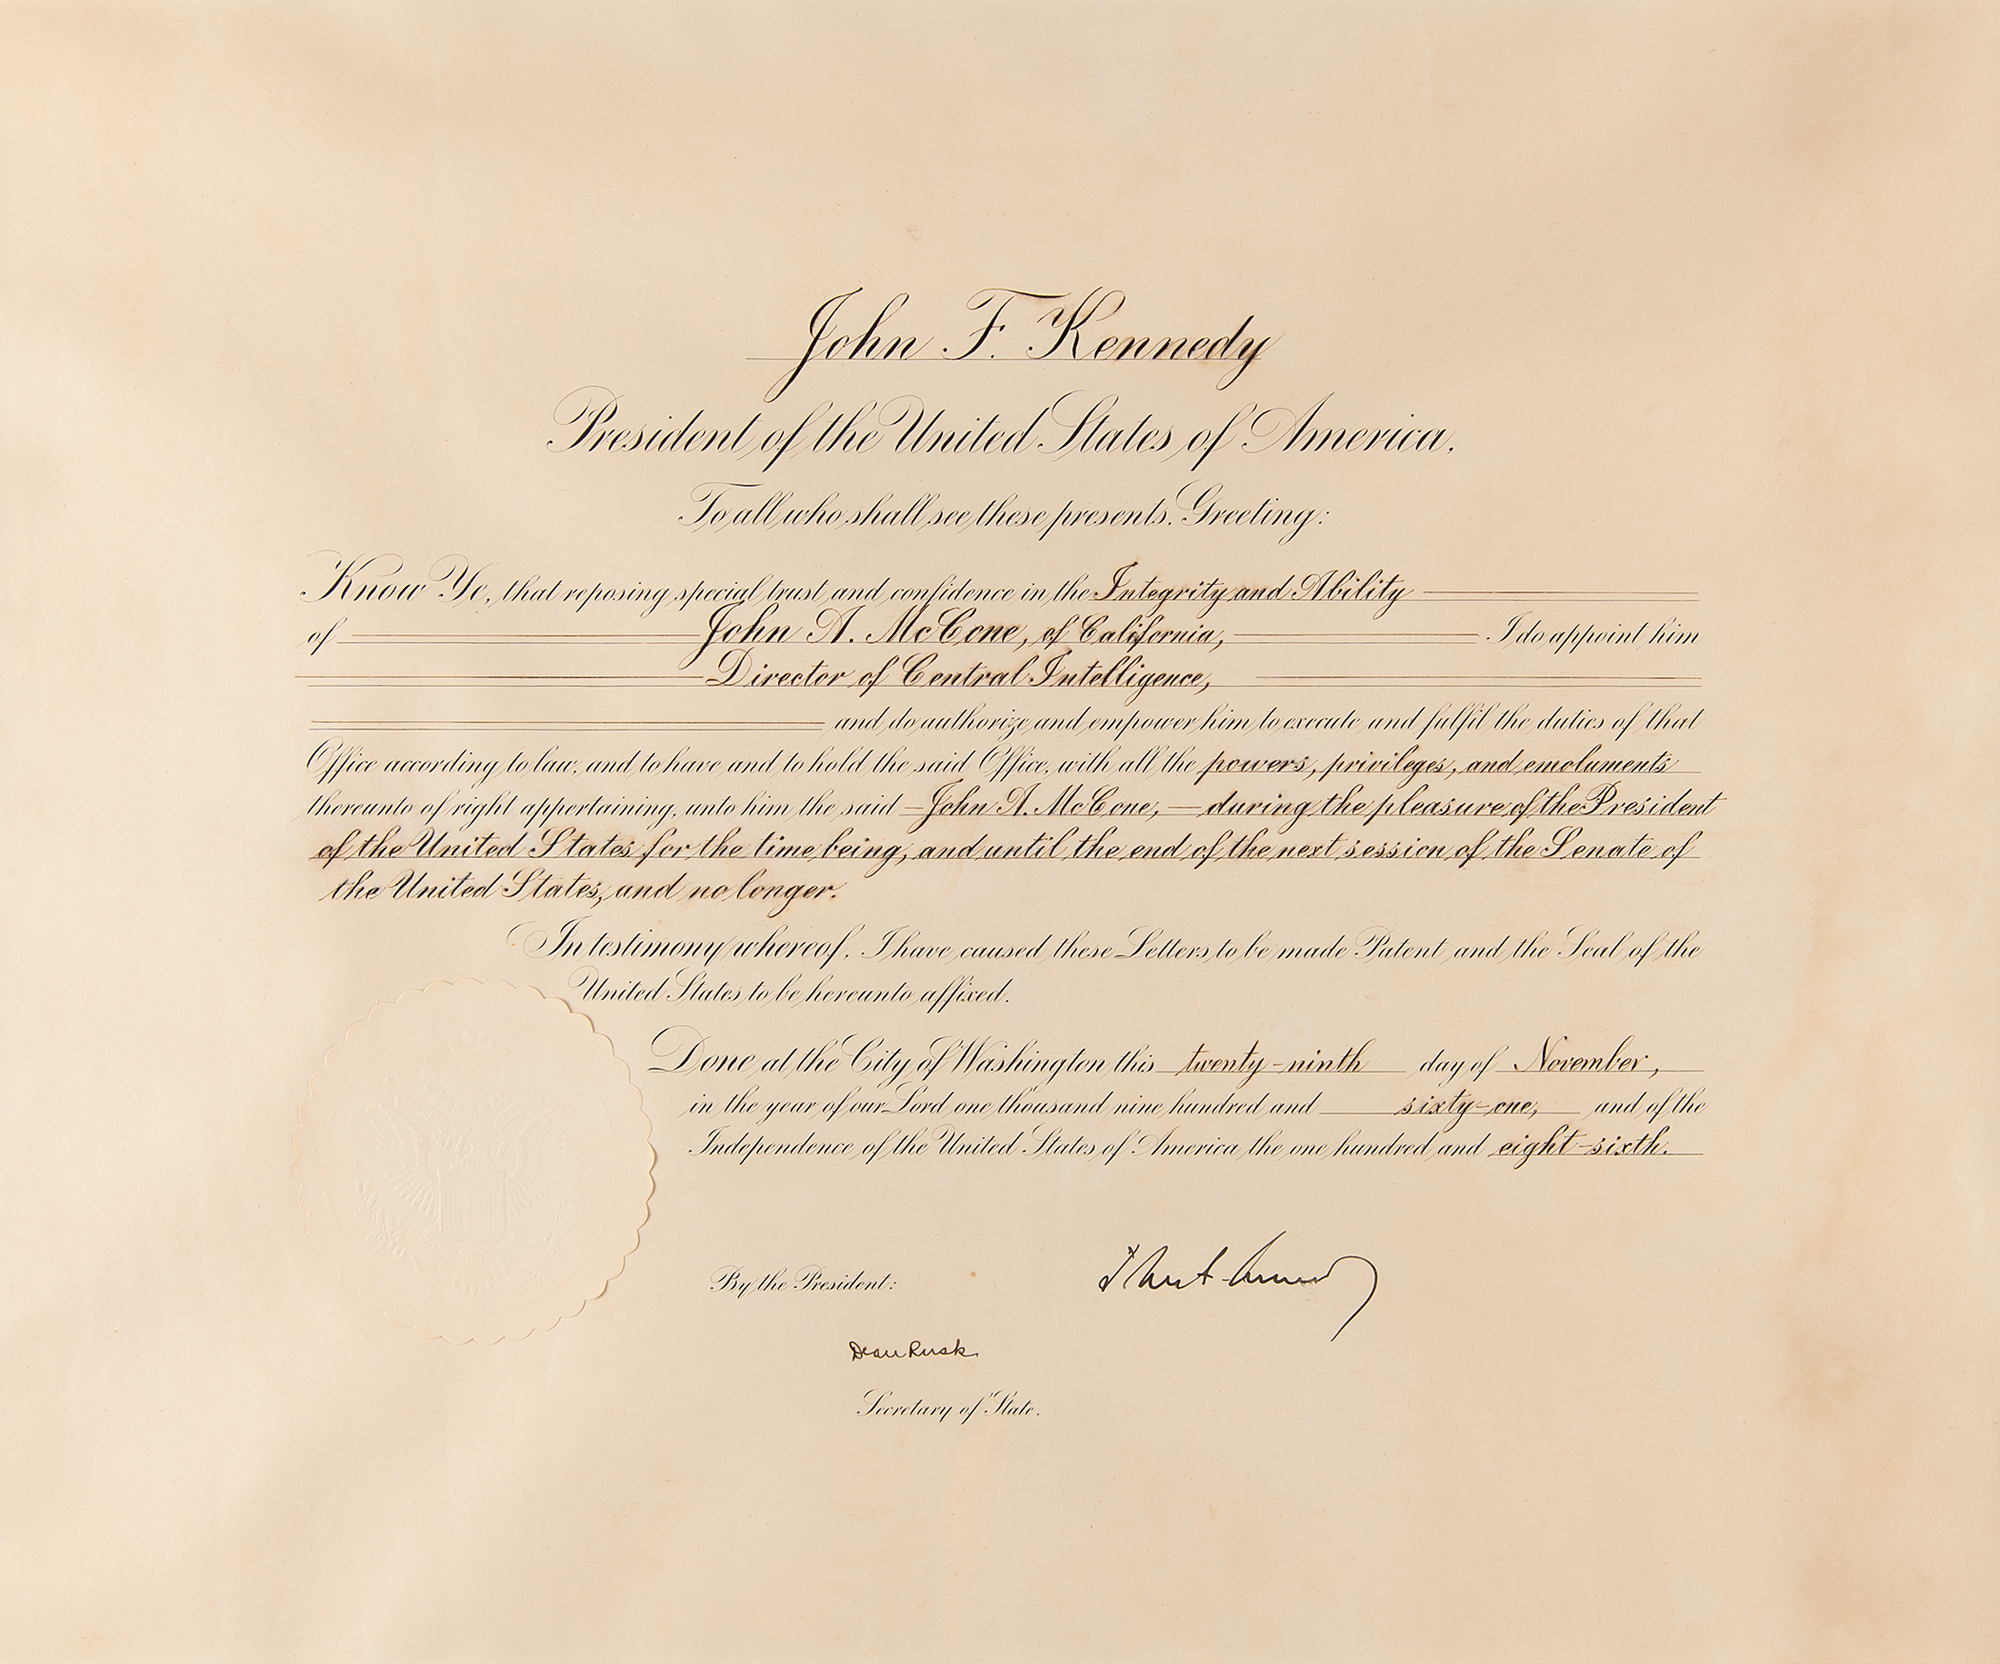 John F. Kennedy
President of the United States of America,
To all who shall see these presents, Greeting:
Know Ye, that reposing special trust and confidence in the Integrity and Ability
of John A. McCone, of California, I do appoint him
Director of Central Intelligence,
and do authorize and empower him to execute and fulfil the duties of that
Office according to law, and to have and to hold the said Office, with all the powers, privileges, and emoluments
thereunto of right appertaining, unto him the said John A. McCone, during the pleasure of the President
of the United States for the time being, and until the end of the next session of the Senate of
the United States, and no longer.
In testimony whereof, I have caused these Letters to be made Patent and the Seal of the
United States to be hereunto affixed.
Done at the City of Washington this twenty-ninth day of November,
in the year of our Lord one thousand nine hundred and sixty-one, and of the
Independence of the United States of America the one hundred and eight-sixth.
By the President:
Dean Rusk
Secretary of State.